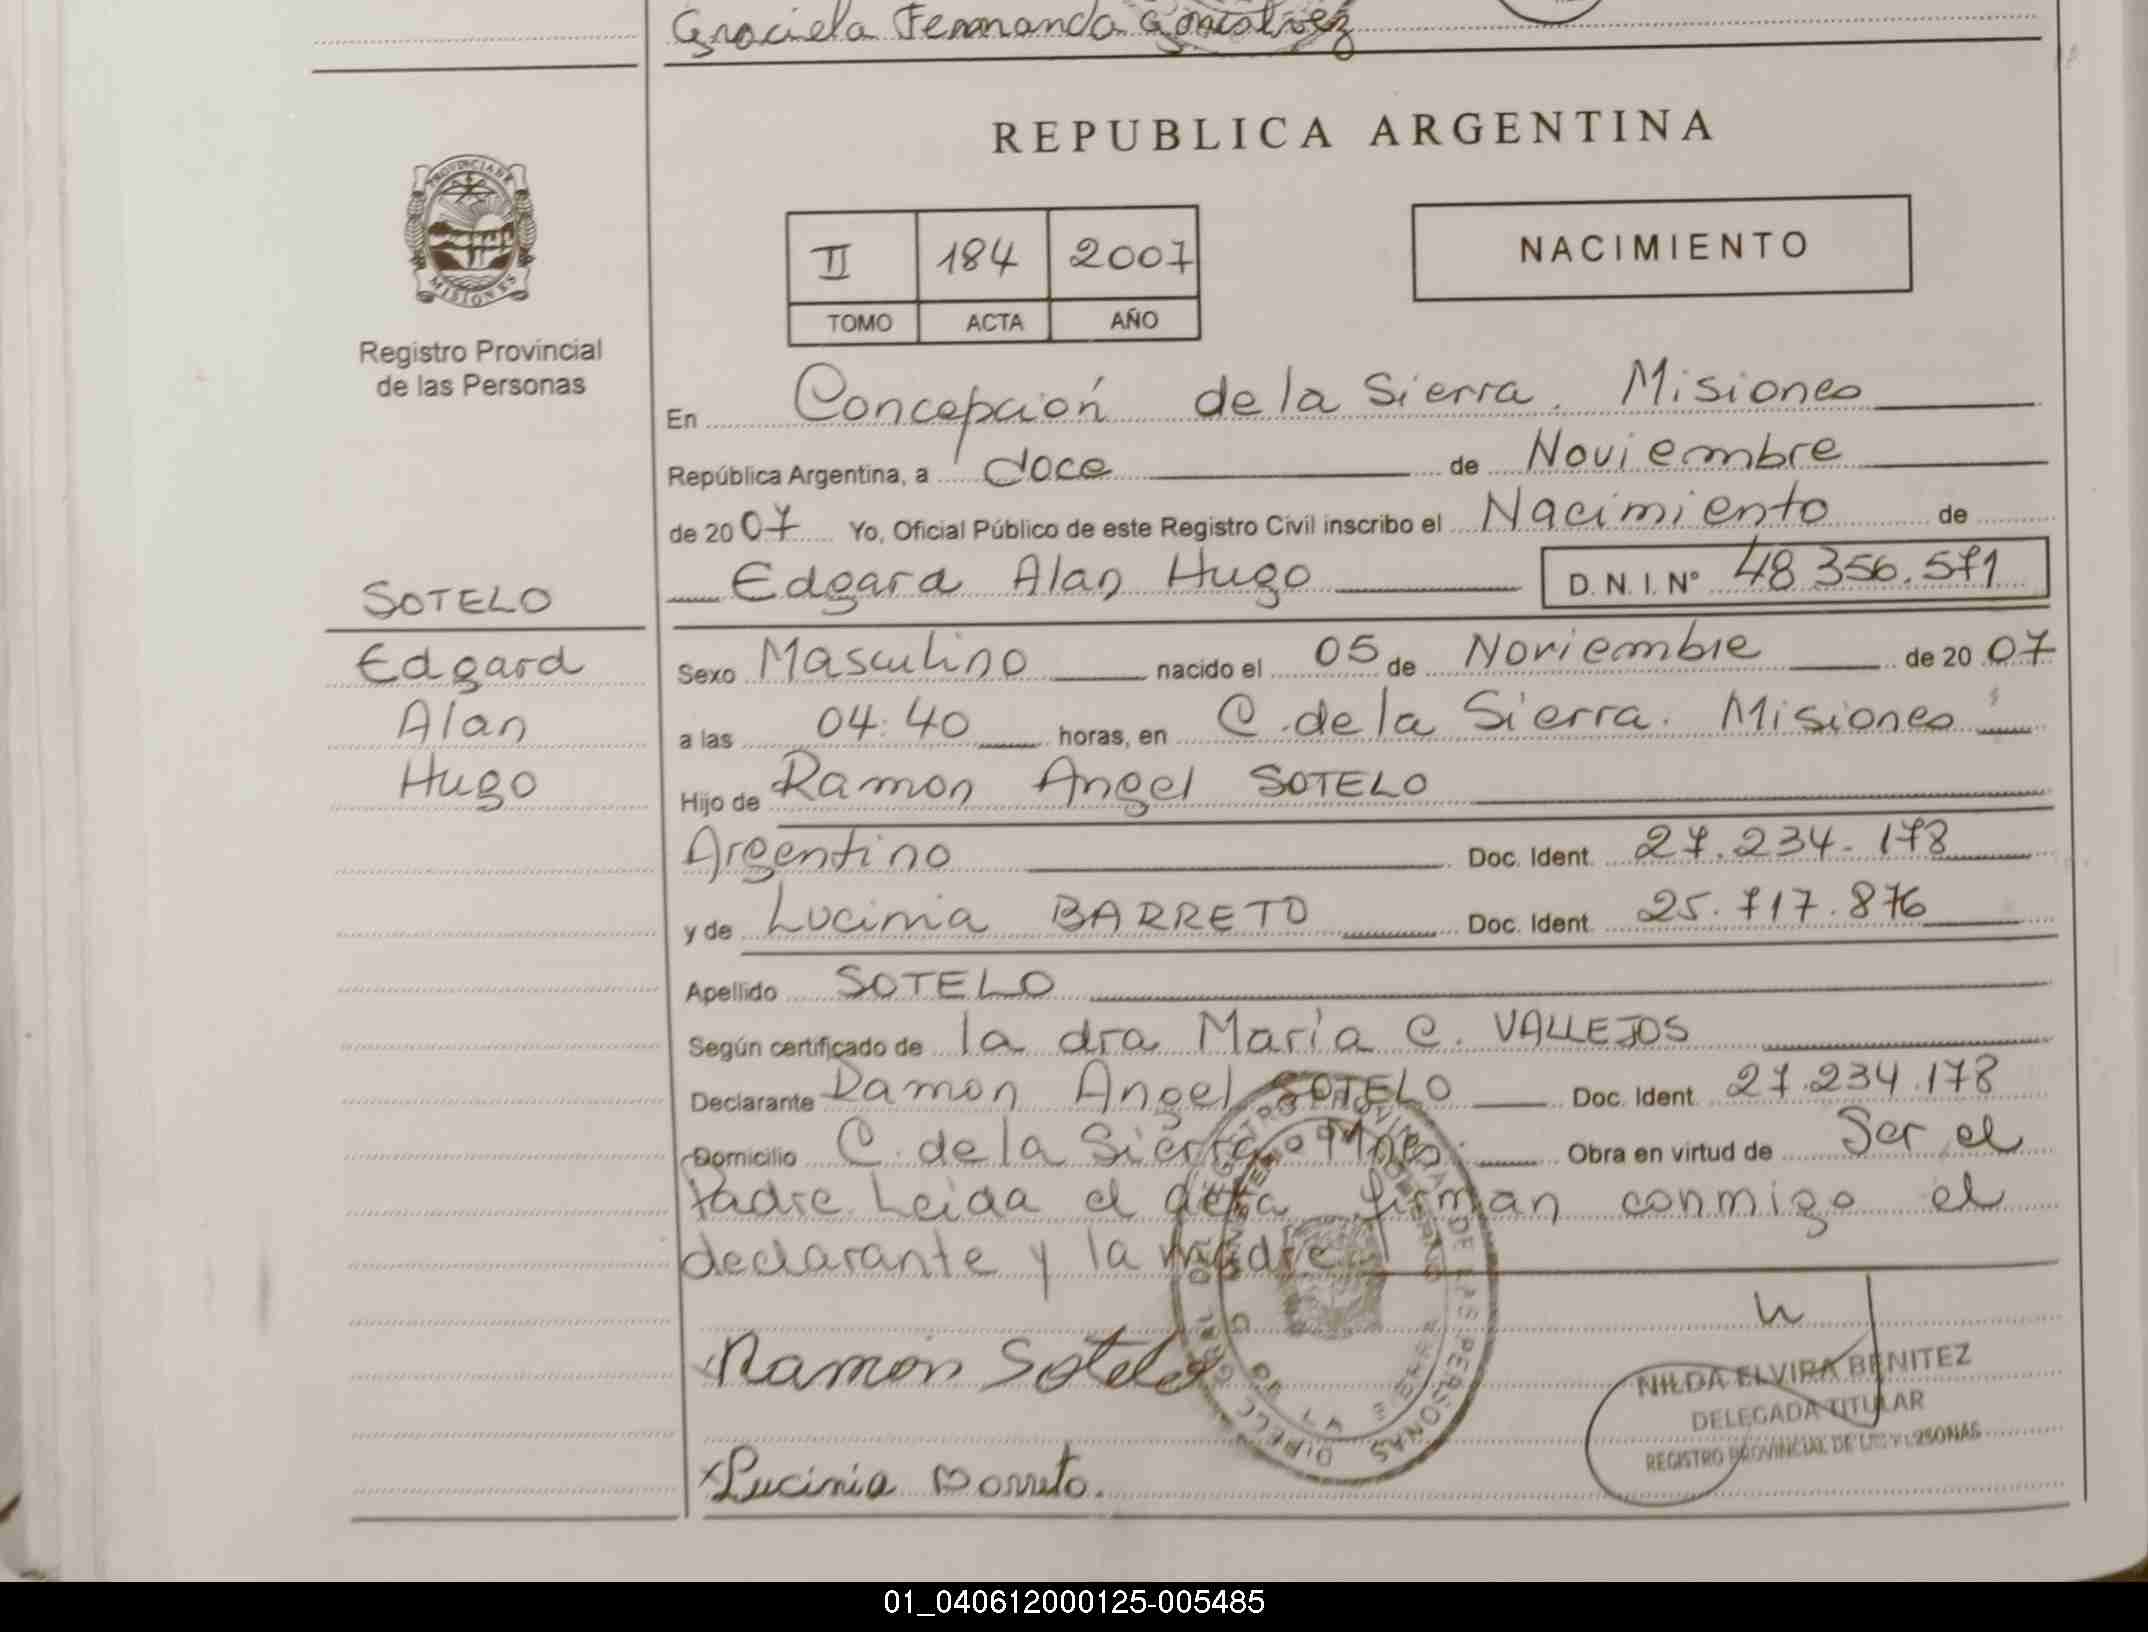 Graciela Fernanda Goncalvez
REPUBLICA ARGENTINA
PROVINCIA DE
MISIONES
Registro Provincial
de las Personas
II 184 2007
TOMO ACTA AÑO
NACIMIENTO
En Concepción de la Sierra. Misiones
República Argentina, a doce de Noviembre
de 2007 Yo, Oficial Público de este Registro Civil inscribo el Nacimiento de
Edgard Alan Hugo D. N. I. N° 48.356.571
SOTELO
Edgard
Alan
Hugo
Sexo Masculino nacido el 05 de Noviembre de 2007
a las 04:40 horas, en C. de la Sierra. Misiones
Hijo de Ramon Angel SOTELO
Argentino Doc. Ident. 27.234.178
y de Lucinia BARRETO Doc. Ident. 25.717.876
Apellido SOTELO
Según certificado de la dra María C. VALLEJOS
Declarante Ramon Angel SOTELO Doc. Ident. 27.234.178
Domicilio C. de la Sierra Mnes. Obra en virtud de Ser el
Padre Leida el acta firman conmigo el
declarante y la madre
Ramón Sotelo
Lucinia Borreto.
NILDA ELVIRA BENITEZ
DELEGADA TITULAR
REGISTRO PROVINCIAL DE LAS PERSONAS
01_040612000125-005485